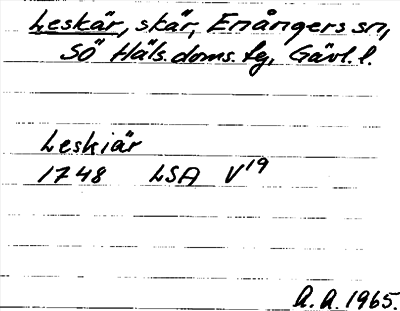 Leskär, skär, Enångers sn,
SÖ Häls. doms. lg, Gävl. l.
Leskiär
1748 LSA V19
A. A. 1965.